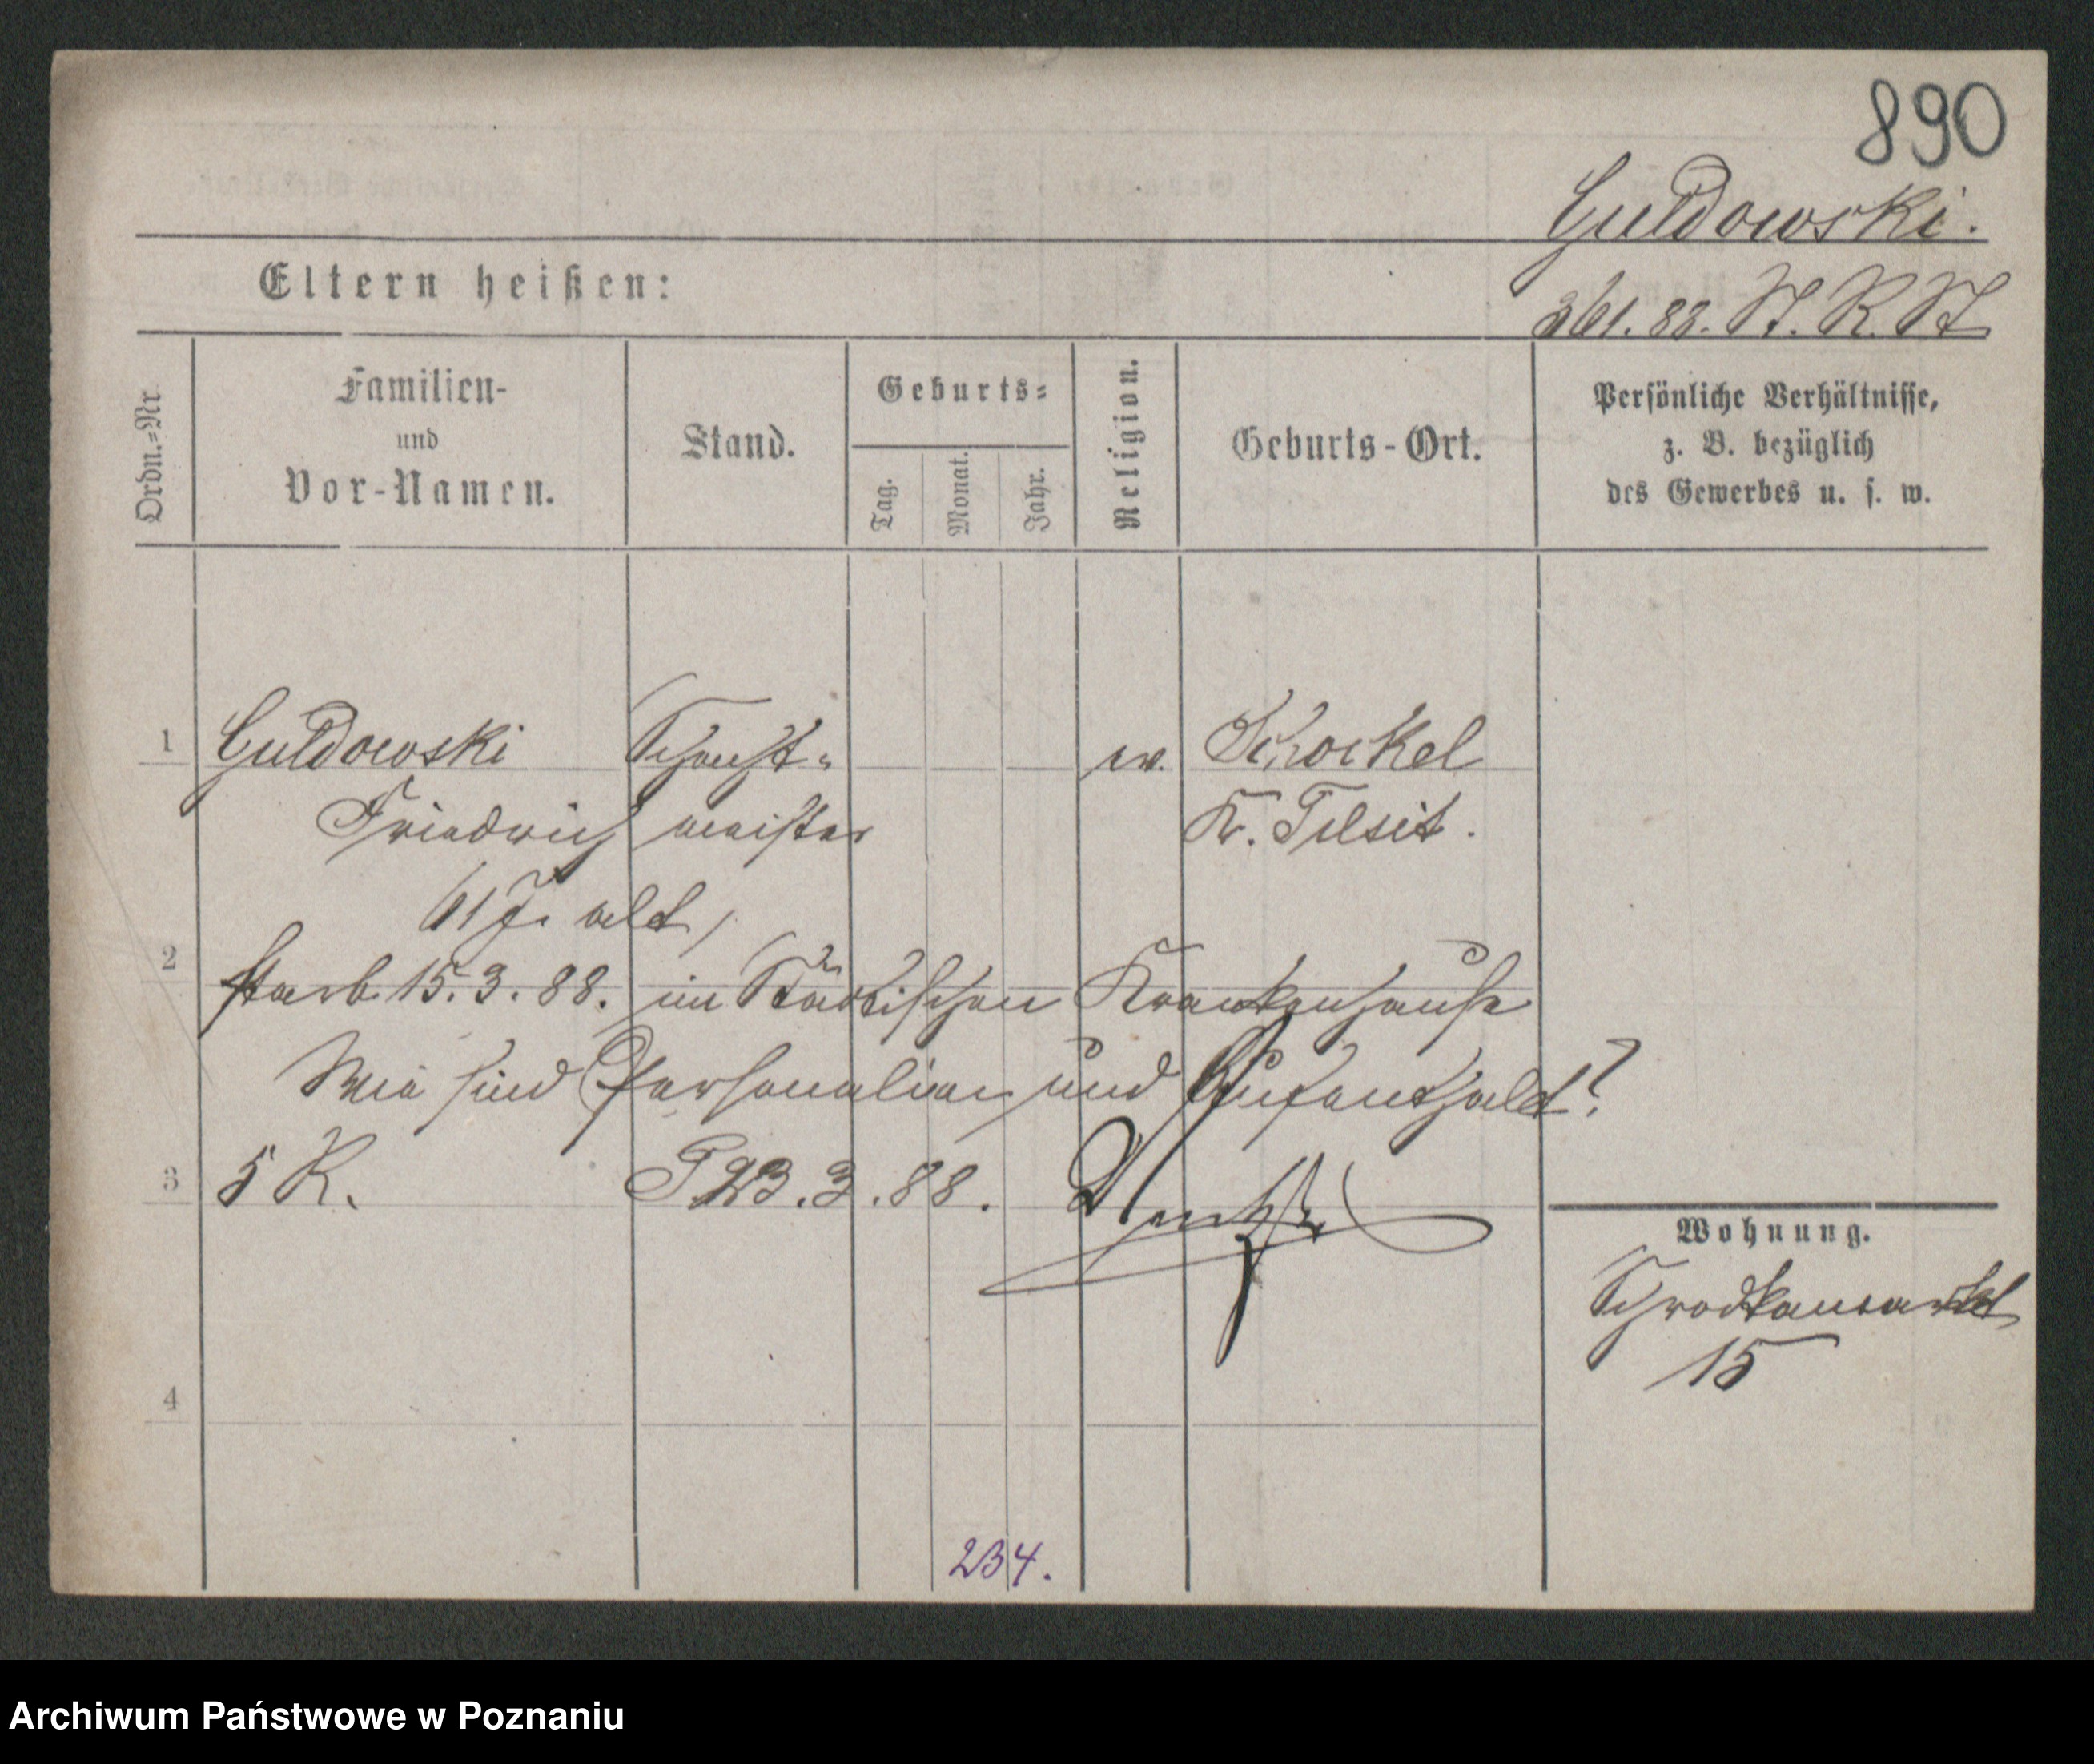 890
Guldowski.
261. 88. St. K. St
Eltern heißen:
Ordn.=Nr.
Familien-
und
Vor-Namen.
Stand.
Geburts=
Tag.
Monat.
Jahr.
Religion.
Geburts-Ort.
Persönliche Verhältnisse,
z. B. bezüglich
des Gewerbes u. s. w.
1 Guldowski ev.
Friedrich meister K. Tilsit.
61 J. alt,
2 starb 15.3.88. im Städtischen Krankenhause
Wie sind Personalien und Aufenthalt?
3 5 K. P 23.3.88.
Wohnung.
Schrodkamarkt
15
4
234.
Archiwum Państwowe w Poznaniu